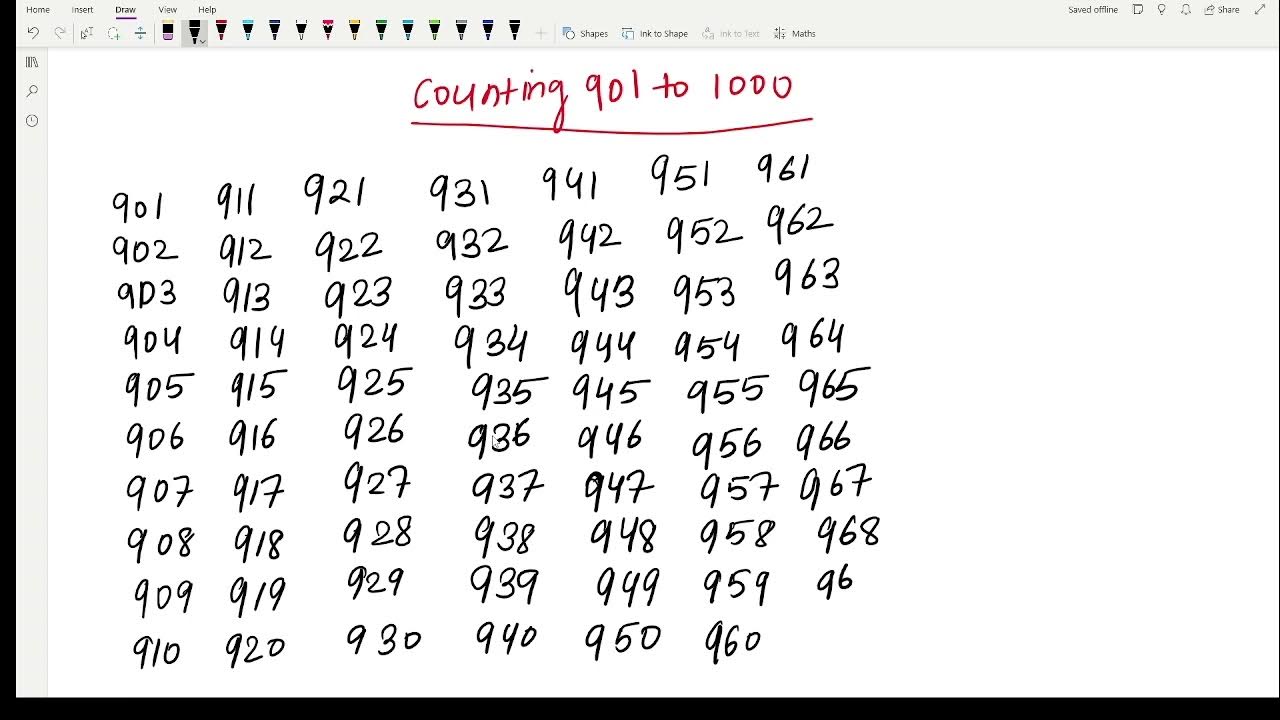 Home Insert Draw View Help Saved offline Share
Shapes Ink to Shape Ink to Text Maths
Counting 901 to 1000
901 911 921 931 941 951 961
902 912 922 932 942 952 962
903 913 923 933 943 953 963
904 914 924 934 944 954 964
905 915 925 935 945 955 965
906 916 926 936 946 956 966
907 917 927 937 947 957 967
908 918 928 938 948 958 968
909 919 929 939 949 959 96
910 920 930 940 950 960